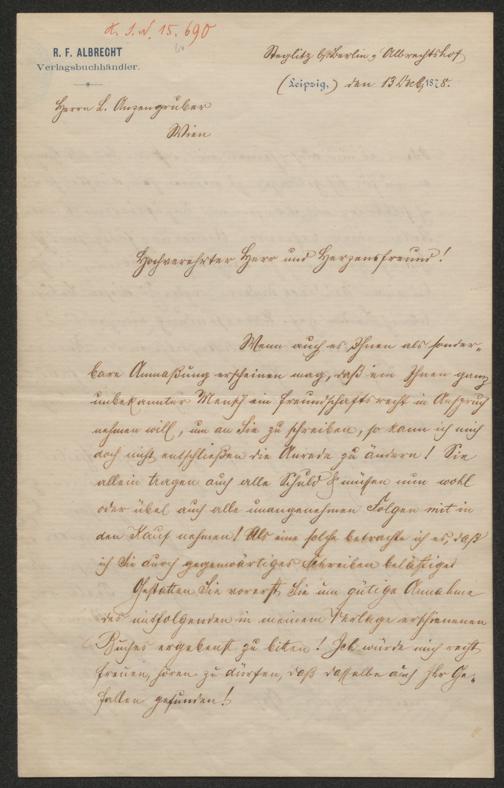 K. I. N. 15.690
R. F. ALBRECHT
Verlagsbuchhändler.
Steglitz b/Berlin, Albrechtshof
(Leipzig,) den 13 Dcb. 1878.
Herrn L. Anzengruber
Wien
Hochverehrter Herr und Herzensfreund!
Wenn auch es Ihnen als sonder-
bare Anmaßung erscheinen mag, daß ein Ihnen ganz
unbekannter Mensch ein Freundschaftsrecht in Anspruch
nehmen will, um an Sie zu schreiben, so kann ich mich
doch nicht entschließen die Anrede zu ändern! Sie
allein tragen auch alle Schuld & müßen nun wohl
oder übel auch alle unangenehmen Folgen mit in
den Kauf nehmen! Als eine solche betrachte ich es, daß
ich Sie durch gegenwärtiges Schreiben belästige!
Gestatten Sie vorerst, Sie um gütige Annahme
des mitfolgenden in meinem Verlage erschienenen
Buches ergebenst zu biten! Ich würde mich recht
freuen, hören zu dürfen, daß dasselbe auch Ihr Ge-
fallen gefunden!